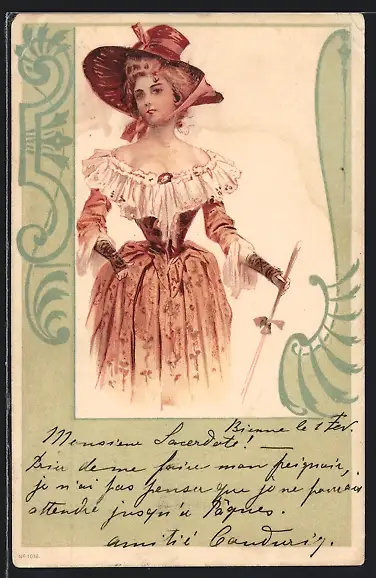 Bienne le 1 Fev.
Monsieur Sacerdote!
de me faire mon peignoir,
je n'ai pas penser que je ne pourrais
attendre jusqu'à Pâques.
amitié
No 1010.